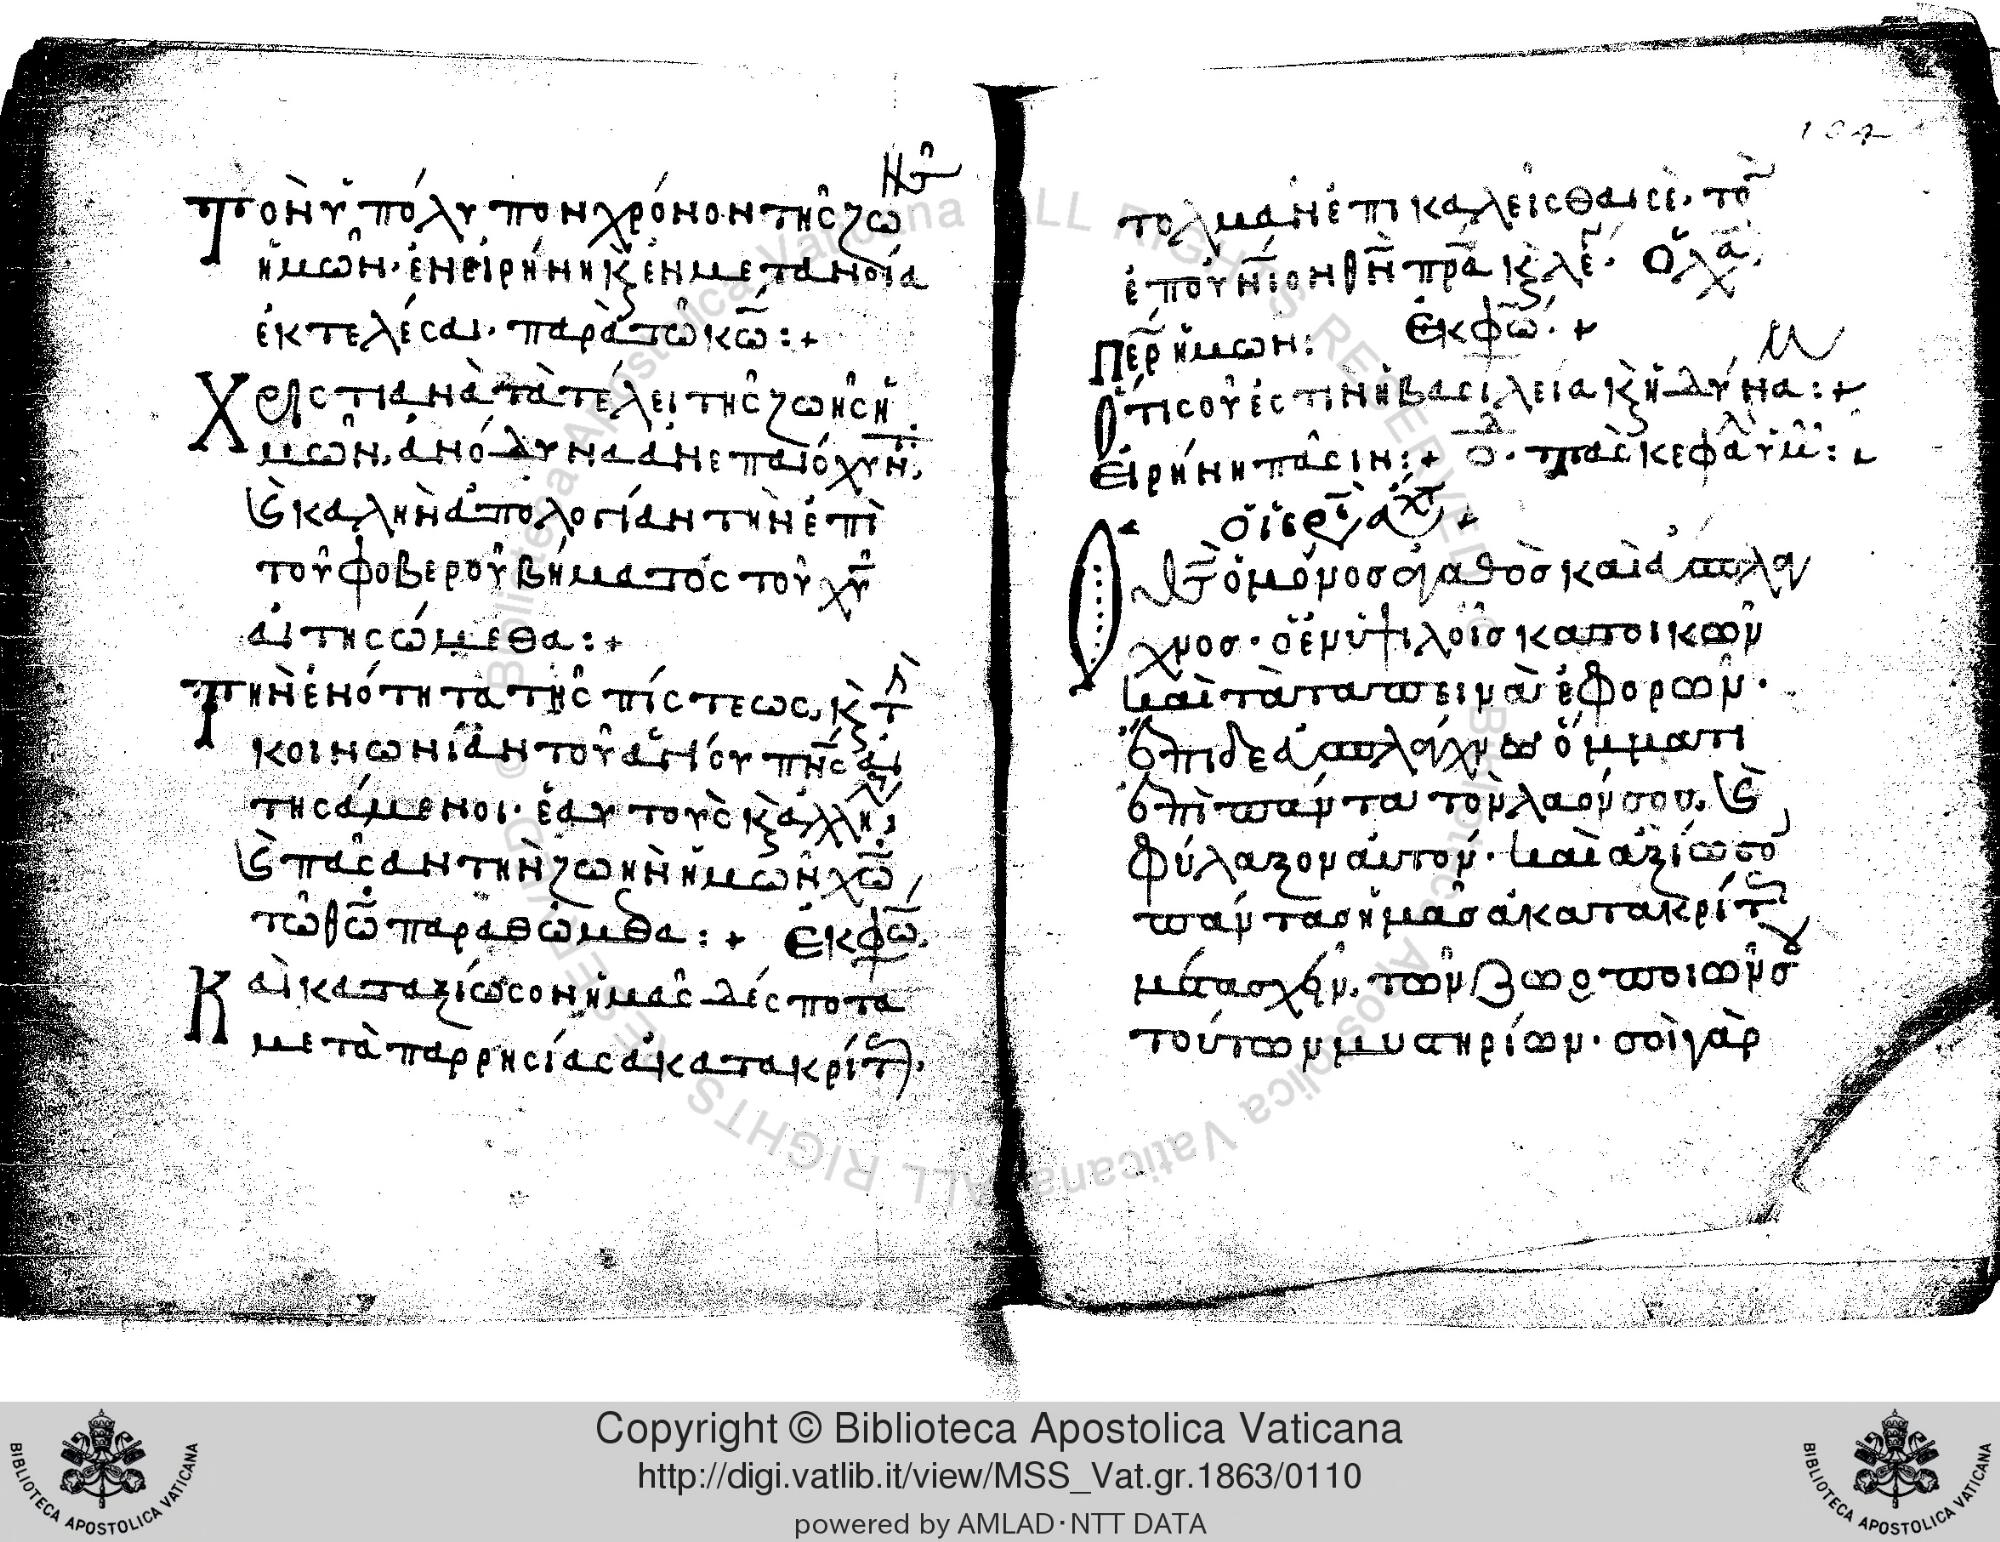 Τὸν ὑπόλυπον χρόνον τῆς ζωῆς
ἡμῶν· ἐν εἰρήνη κ(αὶ) ἐν μετανοία
ἐκτελέσαι· παρὰ τῶ κω:+
Χριστιανὰ τὰ τέλει τῆς ζωῆς ἡ
μῶν, ἀνόδυνα ἀνεπαίσχυν,
κ(αὶ) καλὴν ἀπολογίαν τὴν ἐπὶ
τοῦ φοβεροῦ βήματος τοῦ χυ
αἰτησώμεθα:+
Τὴν ἑνότητα τῆς πίστεως, κ(αὶ) τ(ὴν)
κοινωνίαν τοῦ ἁγίου πνς αἰ
τησάμενοι· ἑαυτοὺς κ(αὶ) ἀλλήλ,
κ(αὶ) πᾶσαν τὴν ζωὴν ἡμῶν χω
τῶ θω παραθώμεθα:+ Ἐκφώ.
Καὶ καταξίωσον ἡμᾶς δέσποτα
μετὰ παρρησίας ἀκατακρίτ.
104
τολμᾶν ἐπικαλεῖσθαι σὲ· τὸ
ἐπουνιον θν πρα κ(αὶ) λέ· Ὁ λα
Περ ἡμῶν: Ἐκφώ·+
Ὅτι σοῦ ἐστὶν ἡ βασιλεία κ(αὶ) ἡ δύνα:+
Εἰρήνη πᾶσιν:+ Ὁ δ· τὰς κεφα ὑμ:
Ὁ ἱερ εὐχ+
Ὁ ὢν μόνος ἀγαθὸς καὶ εὔσπλα
χνος· ὁ ἐν ὑψιλοῖς κατοικῶν
καὶ τὰ ταπεινὰ ἐφορῶν·
ἔπιδε εὐσπλάχνω ὄμματι
ἐπὶ πάντα τὸν λαόν σου, κ(αὶ)
φύλαξον αὐτόν· καὶ ἀξίωσο
πάντας ἡμᾶς ἀκατακρίτ
μετασχεῖν, τῶν ζωοποιῶν σ
τούτων μυστηρίων· σοὶ γὰρ
Copyright © Biblioteca Apostolica Vaticana
http://digi.vatlib.it/view/MSS_Vat.gr.1863/0110
powered by AMLAD·NTT DATA
BIBLIOTECA APOSTOLICA VATICANA
BIBLIOTECA APOSTOLICA VATICANA